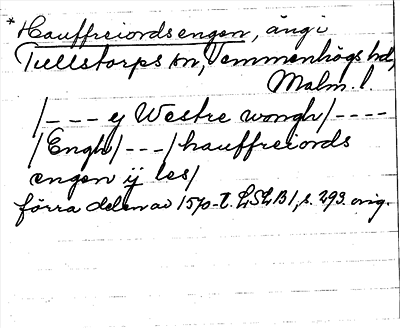 *Hauffreiordsengen, äng i
Tullstorps sn, Vemmenhögs hd,
Malm. l.
/--- ej Westre wongh/----
/Engh/---/hauffreiords
engen ij les/
förra delen av 1570-t. LSLB 1, s. 293. orig.